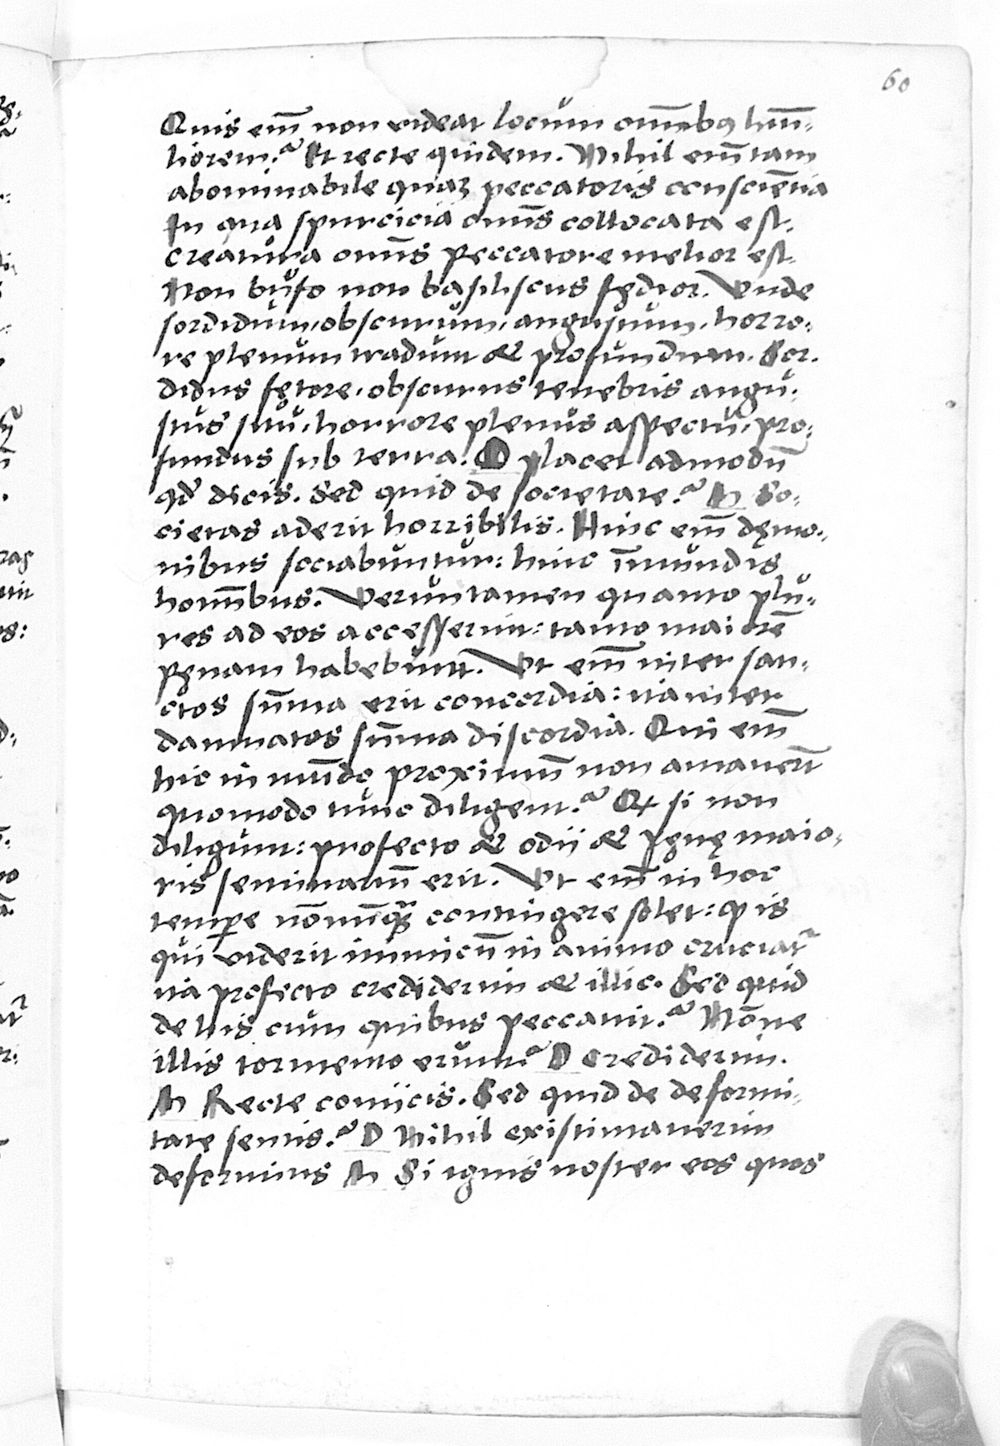 60
Quis em̄ non videat locum om̄ibꝫ hu͞mi-
liorem? Et recte quidem. Nihil em̄ tam
abominabile quaꝫ peccatoris conscien̄tia
In qua spurcicia omn̄s collocata est.
creatura omn̄s peccatore melior est.
Non bufo non basiliscus fędior. Vnde
sordidum, obscurum, angustum, horro-
re plenum tradunt & profundum. Sor-
didus fętore, obscurus tenebris angu-
stus situ, horrore plenus aspectu, pro-
fundus sub terra. D placet admodū
qđ dicis. Sed quid de societate? M So-
cietas aderit horribilis. Hinc em̄ dęmo-
nibus sociabuntur: hinc īmundis
homībus. Veruntamen quanto plu-
res ad eos accesserint: tanto maiorē
pęnam habebunt. Vt em̄ inter san-
ctos sūma erit concordia: ita inter
damnatos sūma discordia. Qui em̄
hic in mūdo proximū non amauerūt
quomodo tunc diligent? Et si non
diligunt: profecto & odii & pęnę maio-
ris seminariū erit. Vt em̄ in hoc
tempore nōnūqꝫ contingere solet: ꝙ is
qui viderit inimicū in animo cruciat᷑
ita profecto crediderim & illic. Sed quid
de his cum quibus peccauit? Nōne
illis tormento erunt? D Crediderim.
M Recte coniicis. Sed quid de deformi-
tate sentis? D Nihil existimauerim
deformius M Si ignis noster eos quos